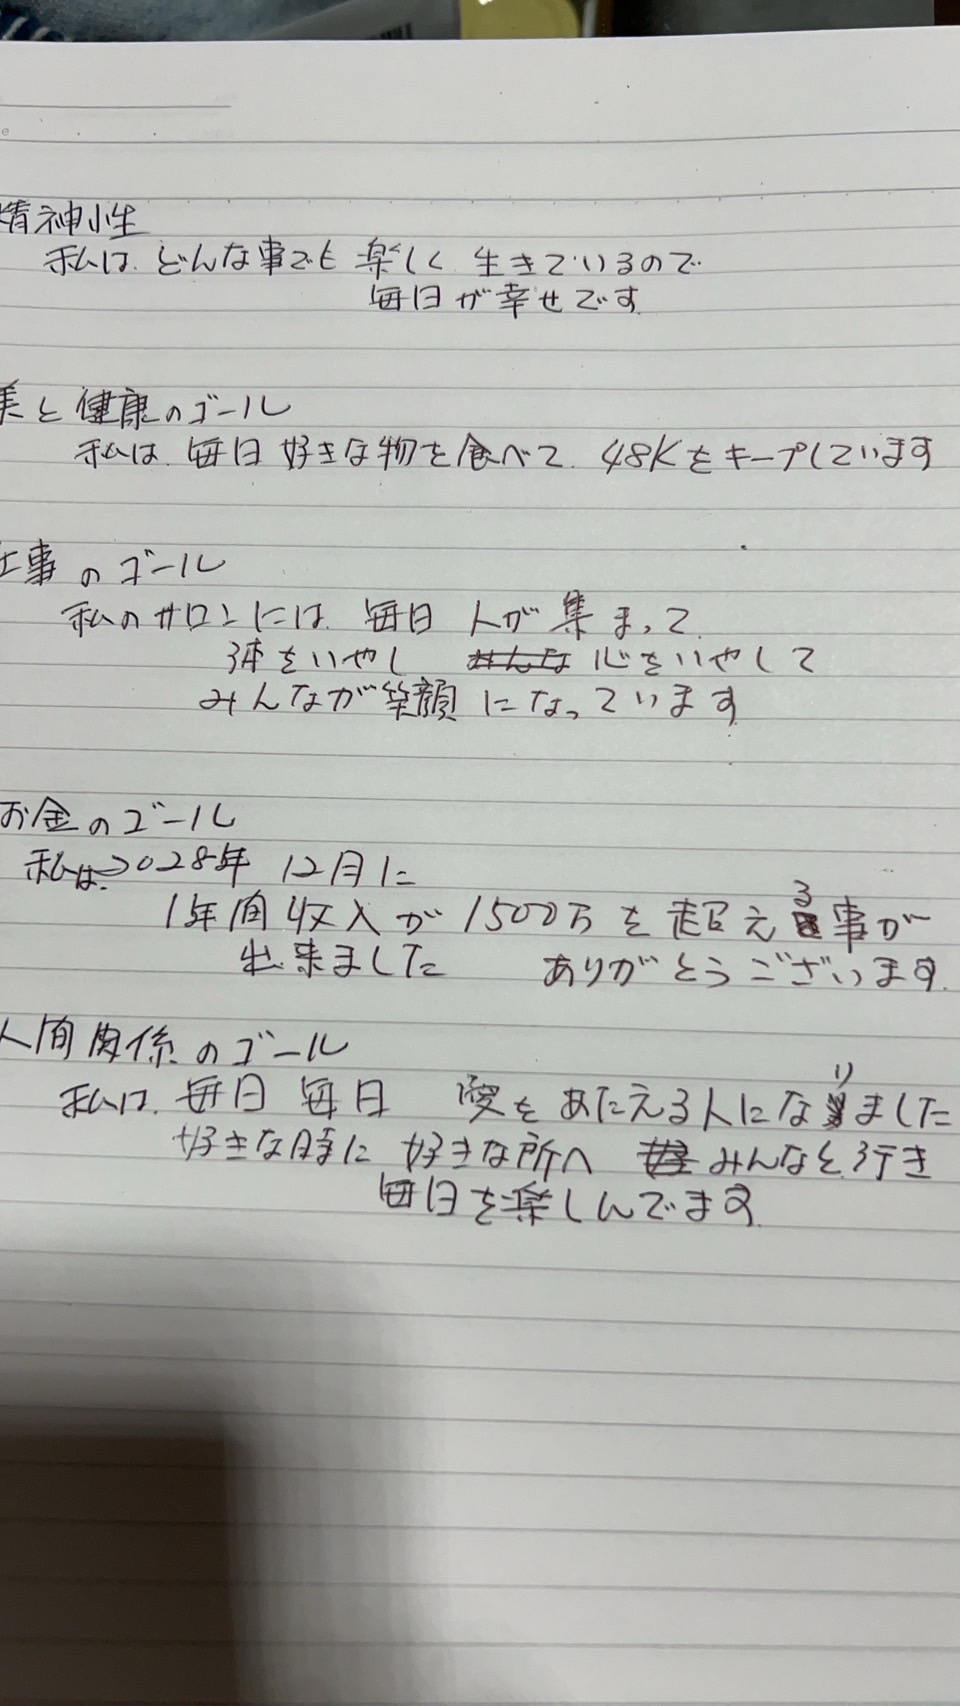 精神性
私は どんな事でも 楽しく 生きているので
毎日が幸せです
美と健康のゴール
私は 毎日 好きな物を食べて 48Kをキープしています
仕事のゴール
私のサロンには 毎日 人が集まって
体をいやし みんな 心をいやして
みんなが笑顔になっています
お金のゴール
私は2028年 12月に
1年間収入が1500万を超える事が
出来ました ありがとうございます
人間関係のゴール
私は 毎日 毎日 愛をあたえる人になりました
好きな時に 好きな所へ みんなと行き
毎日を楽しんでます